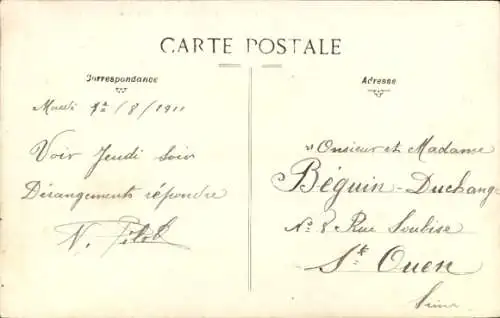 CARTE POSTALE
Correspondance
Mardi 1er/8/1911
Voir Jeudi soir
Dérangements répondre
N.
Adresse
Monsieur et Madame
Béguin-Duchange
No 8 Rue Soubise
St Ouen
Seine